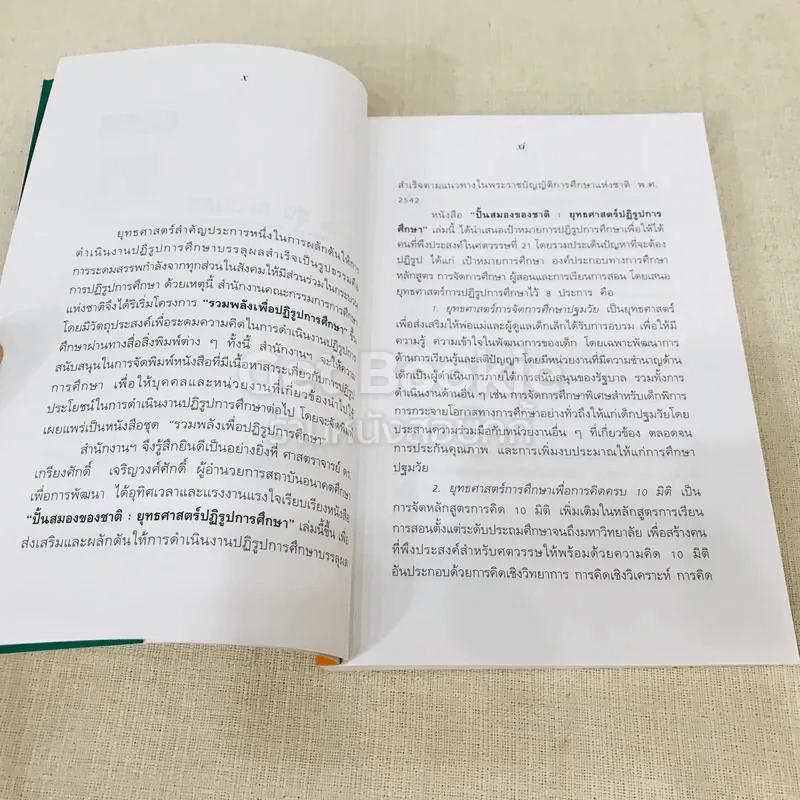 x
ยุทธศาสตร์สำคัญประการหนึ่งในการผลักดันให้การ
ดำเนินงานปฏิรูปการศึกษาบรรลุผลสำเร็จเป็นรูปธรรมคือ
การระดมสรรพกำลังจากทุกส่วนในสังคมให้มีส่วนร่วมในกระบวน
การปฏิรูปการศึกษา ด้วยเหตุนี้ สำนักงานคณะกรรมการการศึกษา
แห่งชาติจึงได้ริเริ่มโครงการ "รวมพลังเพื่อปฏิรูปการศึกษา" ขึ้น
โดยมีวัตถุประสงค์เพื่อระดมความคิดในการดำเนินงานปฏิรูปการ
ศึกษาผ่านทางสื่อสิ่งพิมพ์ต่าง ๆ ทั้งนี้ สำนักงานฯ จะให้ความ
สนับสนุนในการจัดพิมพ์หนังสือที่มีเนื้อหาสาระเกี่ยวกับการปฏิรูป
การศึกษา เพื่อให้บุคคลและหน่วยงานที่เกี่ยวข้องนำไปใช้
ประโยชน์ในการดำเนินงานปฏิรูปการศึกษาต่อไป โดยจะจัดพิมพ์
เผยแพร่เป็นหนังสือชุด "รวมพลังเพื่อปฏิรูปการศึกษา"
สำนักงานฯ จึงรู้สึกยินดีเป็นอย่างยิ่งที่ ศาสตราจารย์ ดร.
เกรียงศักดิ์ เจริญวงศ์ศักดิ์ ผู้อำนวยการสถาบันอนาคตศึกษา
เพื่อการพัฒนา ได้อุทิศเวลาและแรงงานแรงใจเรียบเรียงหนังสือ
"ปั้นสมองของชาติ : ยุทธศาสตร์ปฏิรูปการศึกษา" เล่มนี้ขึ้น เพื่อ
ส่งเสริมและผลักดันให้การดำเนินงานปฏิรูปการศึกษาบรรลุผล
xi
สำเร็จตามแนวทางในพระราชบัญญัติการศึกษาแห่งชาติ พ.ศ.
2542
หนังสือ "ปั้นสมองของชาติ : ยุทธศาสตร์ปฏิรูปการ
ศึกษา" เล่มนี้ ได้นำเสนอเป้าหมายการปฏิรูปการศึกษาเพื่อให้ได้
คนที่พึงประสงค์ในศตวรรษที่ 21 โดยรวมประเด็นปัญหาที่จะต้อง
ปฏิรูป ได้แก่ เป้าหมายการศึกษา องค์ประกอบทางการศึกษา
หลักสูตร การจัดการศึกษา ผู้สอนและการเรียนการสอน โดยเสนอ
ยุทธศาสตร์การปฏิรูปการศึกษาไว้ 8 ประการ คือ
1. ยุทธศาสตร์การจัดการศึกษาปฐมวัย เป็นยุทธศาสตร์
เพื่อส่งเสริมให้พ่อแม่และผู้ดูแลเด็กเล็กได้รับการอบรม เพื่อให้มี
ความรู้ ความเข้าใจในพัฒนาการของเด็ก โดยเฉพาะพัฒนาการ
ด้านการเรียนรู้และสติปัญญา โดยมีหน่วยงานที่มีความชำนาญด้าน
เด็กเป็นผู้ดำเนินการภายใต้การสนับสนุนของรัฐบาล รวมทั้งการ
ดำเนินงานด้านอื่น ๆ เช่น การจัดการศึกษาพิเศษสำหรับเด็กพิการ
การกระจายโอกาสทางการศึกษาอย่างทั่วถึงให้แก่เด็กปฐมวัยโดย
ประสานความร่วมมือกับหน่วยงานอื่น ๆ ที่เกี่ยวข้อง ตลอดจน
การประกันคุณภาพ และการเพิ่มงบประมาณให้แก่การศึกษา
ปฐมวัย
2. ยุทธศาสตร์การศึกษาเพื่อการคิดครบ 10 มิติ เป็น
การจัดหลักสูตรการคิด 10 มิติ เพิ่มเติมในหลักสูตรการเรียน
การสอนตั้งแต่ระดับประถมศึกษาจนถึงมหาวิทยาลัย เพื่อสร้างคน
ที่พึงประสงค์สำหรับศตวรรษให้พร้อมด้วยความคิด 10 มิติ
อันประกอบด้วยการคิดเชิงวิทยาการ การคิดเชิงวิเคราะห์ การคิด